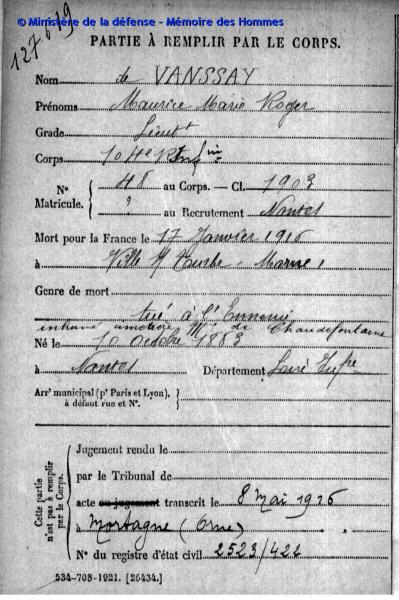 © Ministère de la défense - Mémoire des Hommes
127619
PARTIE À REMPLIR PAR LE CORPS.
Nom de VANSSAY
Prénoms Maurice Marie Roger
Grade Lieutt
Corps 104e Rt Infie
N° Matricule. { 48 au Corps. — Cl. 1903
? au Recrutement Nantes
Mort pour la France le 17 Janvier 1916
à Ville s/ Tourbe (Marne)
Genre de mort
tué à l'Ennemi
inhumé cimetière Mre de Chaudefontaine
Né le 10 Octobre 1883
à Nantes Département Loire Infre
Arrt municipal (pr Paris et Lyon),
à défaut rue et N°.
Cette partie n'est pas à remplir par le Corps.
Jugement rendu le
par le Tribunal de
acte ou jugement transcrit le 8 Mai 1916
à Mortagne (Orne)
N° du registre d'état civil 2523/422
534-708-1921. [26434.]